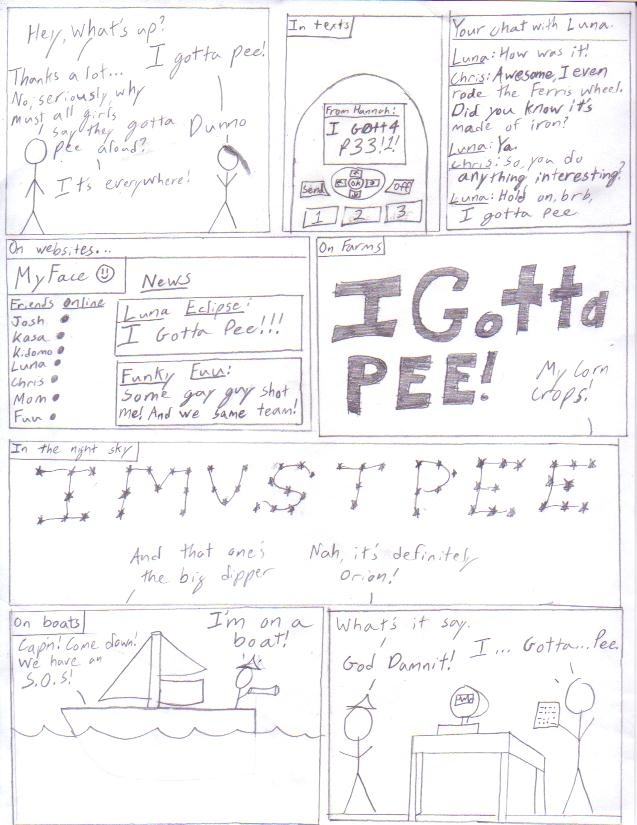 Hey, What's up?
I gotta pee!
Thanks a lot...
No, seriously, why
must all girls
say they gotta
Pee aloud?
Dunno
It's everywhere!
In texts
From Hannah:
I G0tt4
P33!1!
Send
OK
Off
1 2 3
Your chat with Luna.
Luna: How was it!
Chris: Awesome, I even
rode the Ferris wheel.
Did you know it's
made of iron?
Luna: Ya.
Chris: So, you do
anything interesting?
Luna: Hold on, brb,
I gotta pee
On websites...
MyFace
Friends Online
Josh
Kasa
Kidomo
Luna
Chris
Mom
Fuu
News
Luna Eclipse:
I Gotta Pee!!!
Funky Fuu:
Some gay guy shot
me! And we same team!
On Farms
I Gotta
PEE!
My Corn
Crops!
In the night sky
I MUST PEE
And that one's
the big dipper
Nah, it's definitely
Orion!
On boats
Cap'n! Come down!
We have an
S.O.S!
I'm on a
boat!
What's it say.
I... Gotta... Pee.
God Damnit!